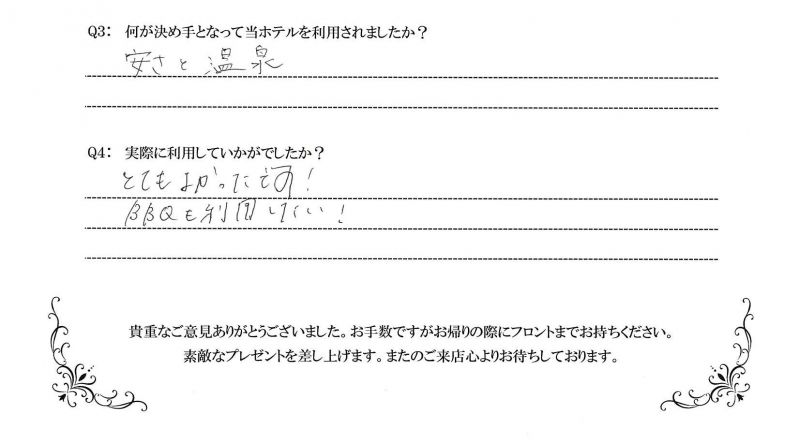 Q3: 何が決め手となって当ホテルを利用されましたか？
安さと温泉
Q4: 実際に利用していかがでしたか？
とてもよかったです!
BBQも利用したい!
貴重なご意見ありがとうございました。お手数ですがお帰りの際にフロントまでお持ちください。
素敵なプレゼントを差し上げます。またのご来店心よりお待ちしております。